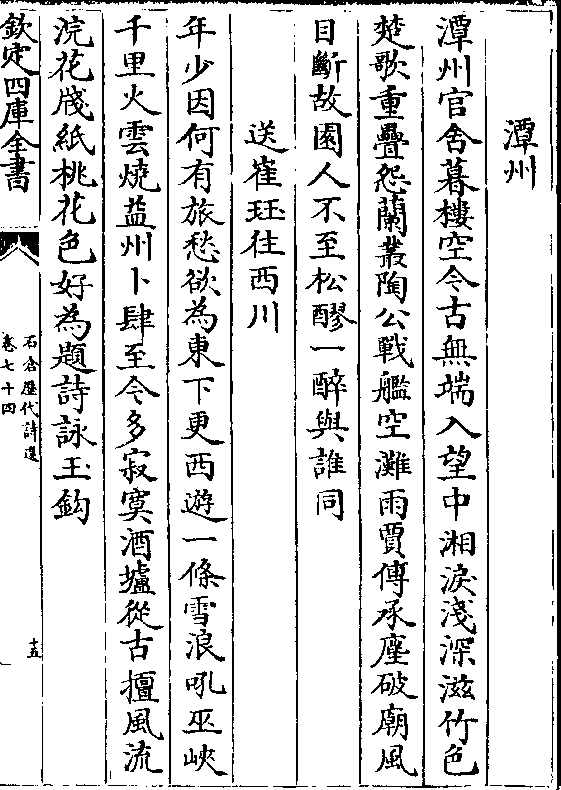 潭州
潭州官舍暮樓空今古無端入望中湘淚淺深滋竹色
楚歌重疊怨蘭叢陶公戰艦空灘雨賈傅承塵破廟風
目斷故園人不至松醪一醉與誰同
送崔珏往西川
年少因何有旅愁欲為東下更西遊一條雪浪吼巫峽
千里火雲燒益州卜肆至今多寂寞酒壚從古擅風流
浣花牋紙桃花色好為題詩詠玉鈎
欽定四庫全書
石倉歷代詩選
卷七十四
十五